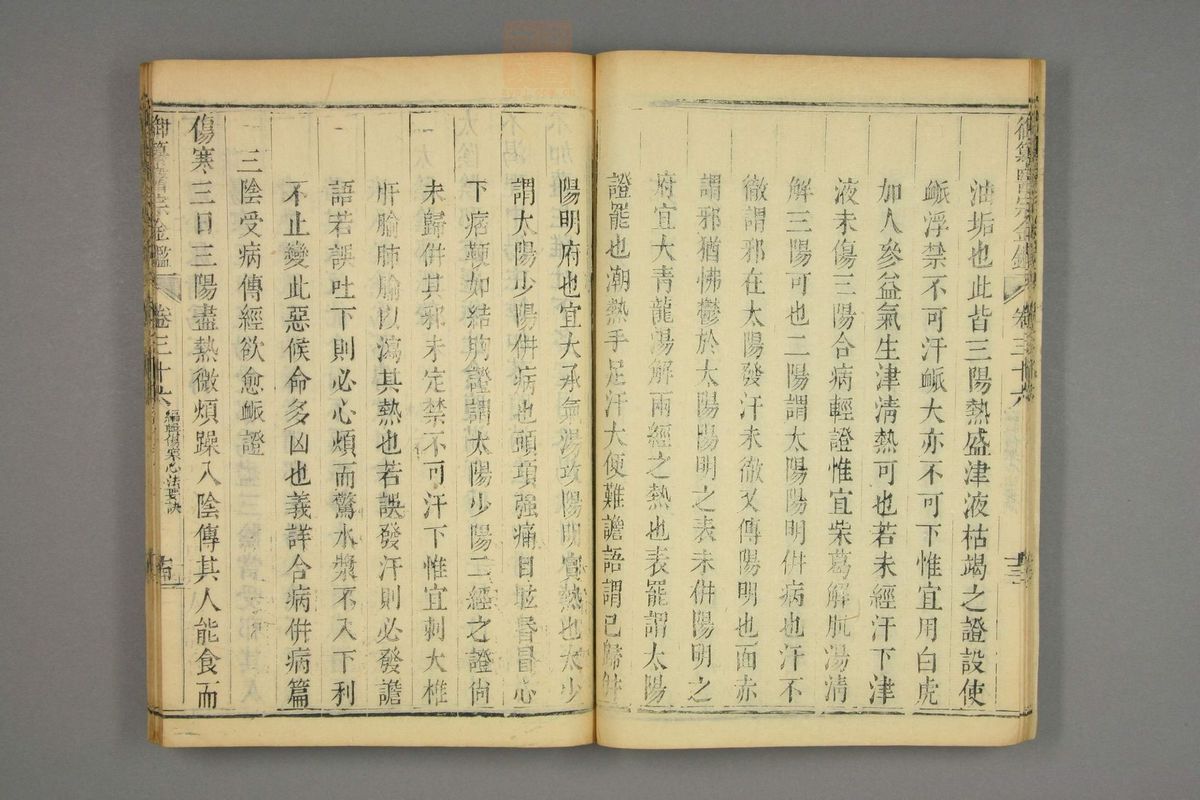 御纂醫宗金鑑 卷三十六
油垢也此皆三陽熱盛津液枯竭之證設使
脈浮禁不可汗脈大亦不可下惟宜用白虎
加人參益氣生津清熱可也若未經汗下津
液未傷三陽合病輕證惟宜柴葛解肌湯清
解三陽可也二陽謂太陽陽明併病也汗不
徹謂邪在太陽發汗未徹又傳陽明也面赤
謂邪猶怫鬱於太陽陽明之表未併陽明之
府宜大青龍湯解兩經之熱也表罷謂太陽
證罷也潮熱手足汗大便難譫語謂已歸併
陽明府也宜大承氣湯攻陽明實熱也太少
謂太陽少陽併病也頭項強痛目眩昏冒心
下痞鞕如結胸證謂太陽少陽二經之證尚
未歸併其邪未定禁不可汗下惟宜刺大椎
肝腧肺腧以瀉其熱也若誤發汗則必發譫
語若誤吐下則必心煩而驚水漿不入下利
不止變此惡候命多凶也義詳合病併病篇
三陰受病傳經欲愈脈證
傷寒三日三陽盡熱微煩躁入陰傳其人能食而
御纂醫宗金鑑 卷三十六 編輯傷寒心法要訣